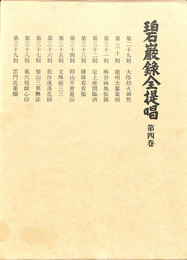 碧巖錄全提唱 第四巻
第二十九則 大隋劫火洞然
第三十則 趙州大蘿蔔頭
第三十一則 麻谷両処振錫
第三十二則 定上座問臨済
第三十三則 陳操看資福
第三十四則 仰山不曾遊山
第三十五則 文殊前三三
第三十六則 長沙逐落花回
第三十七則 盤山三界無法
第三十八則 風穴祖師心印
第三十九則 雲門花薬欄